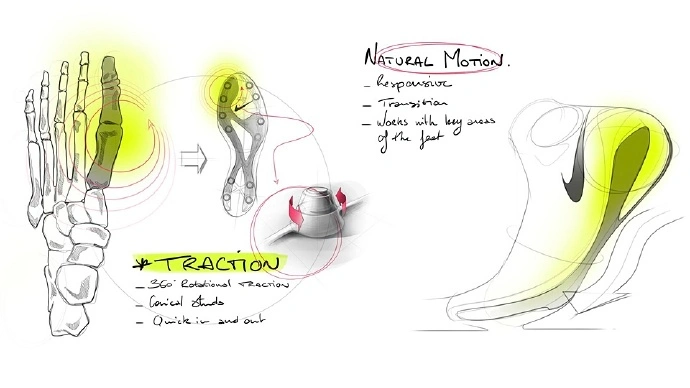 NATURAL MOTION.
- Responsive
- Transition
- Works with key areas
of the feet
* TRACTION
- 360° Rotational TRACTION
- Conical studs
- Quick in and out